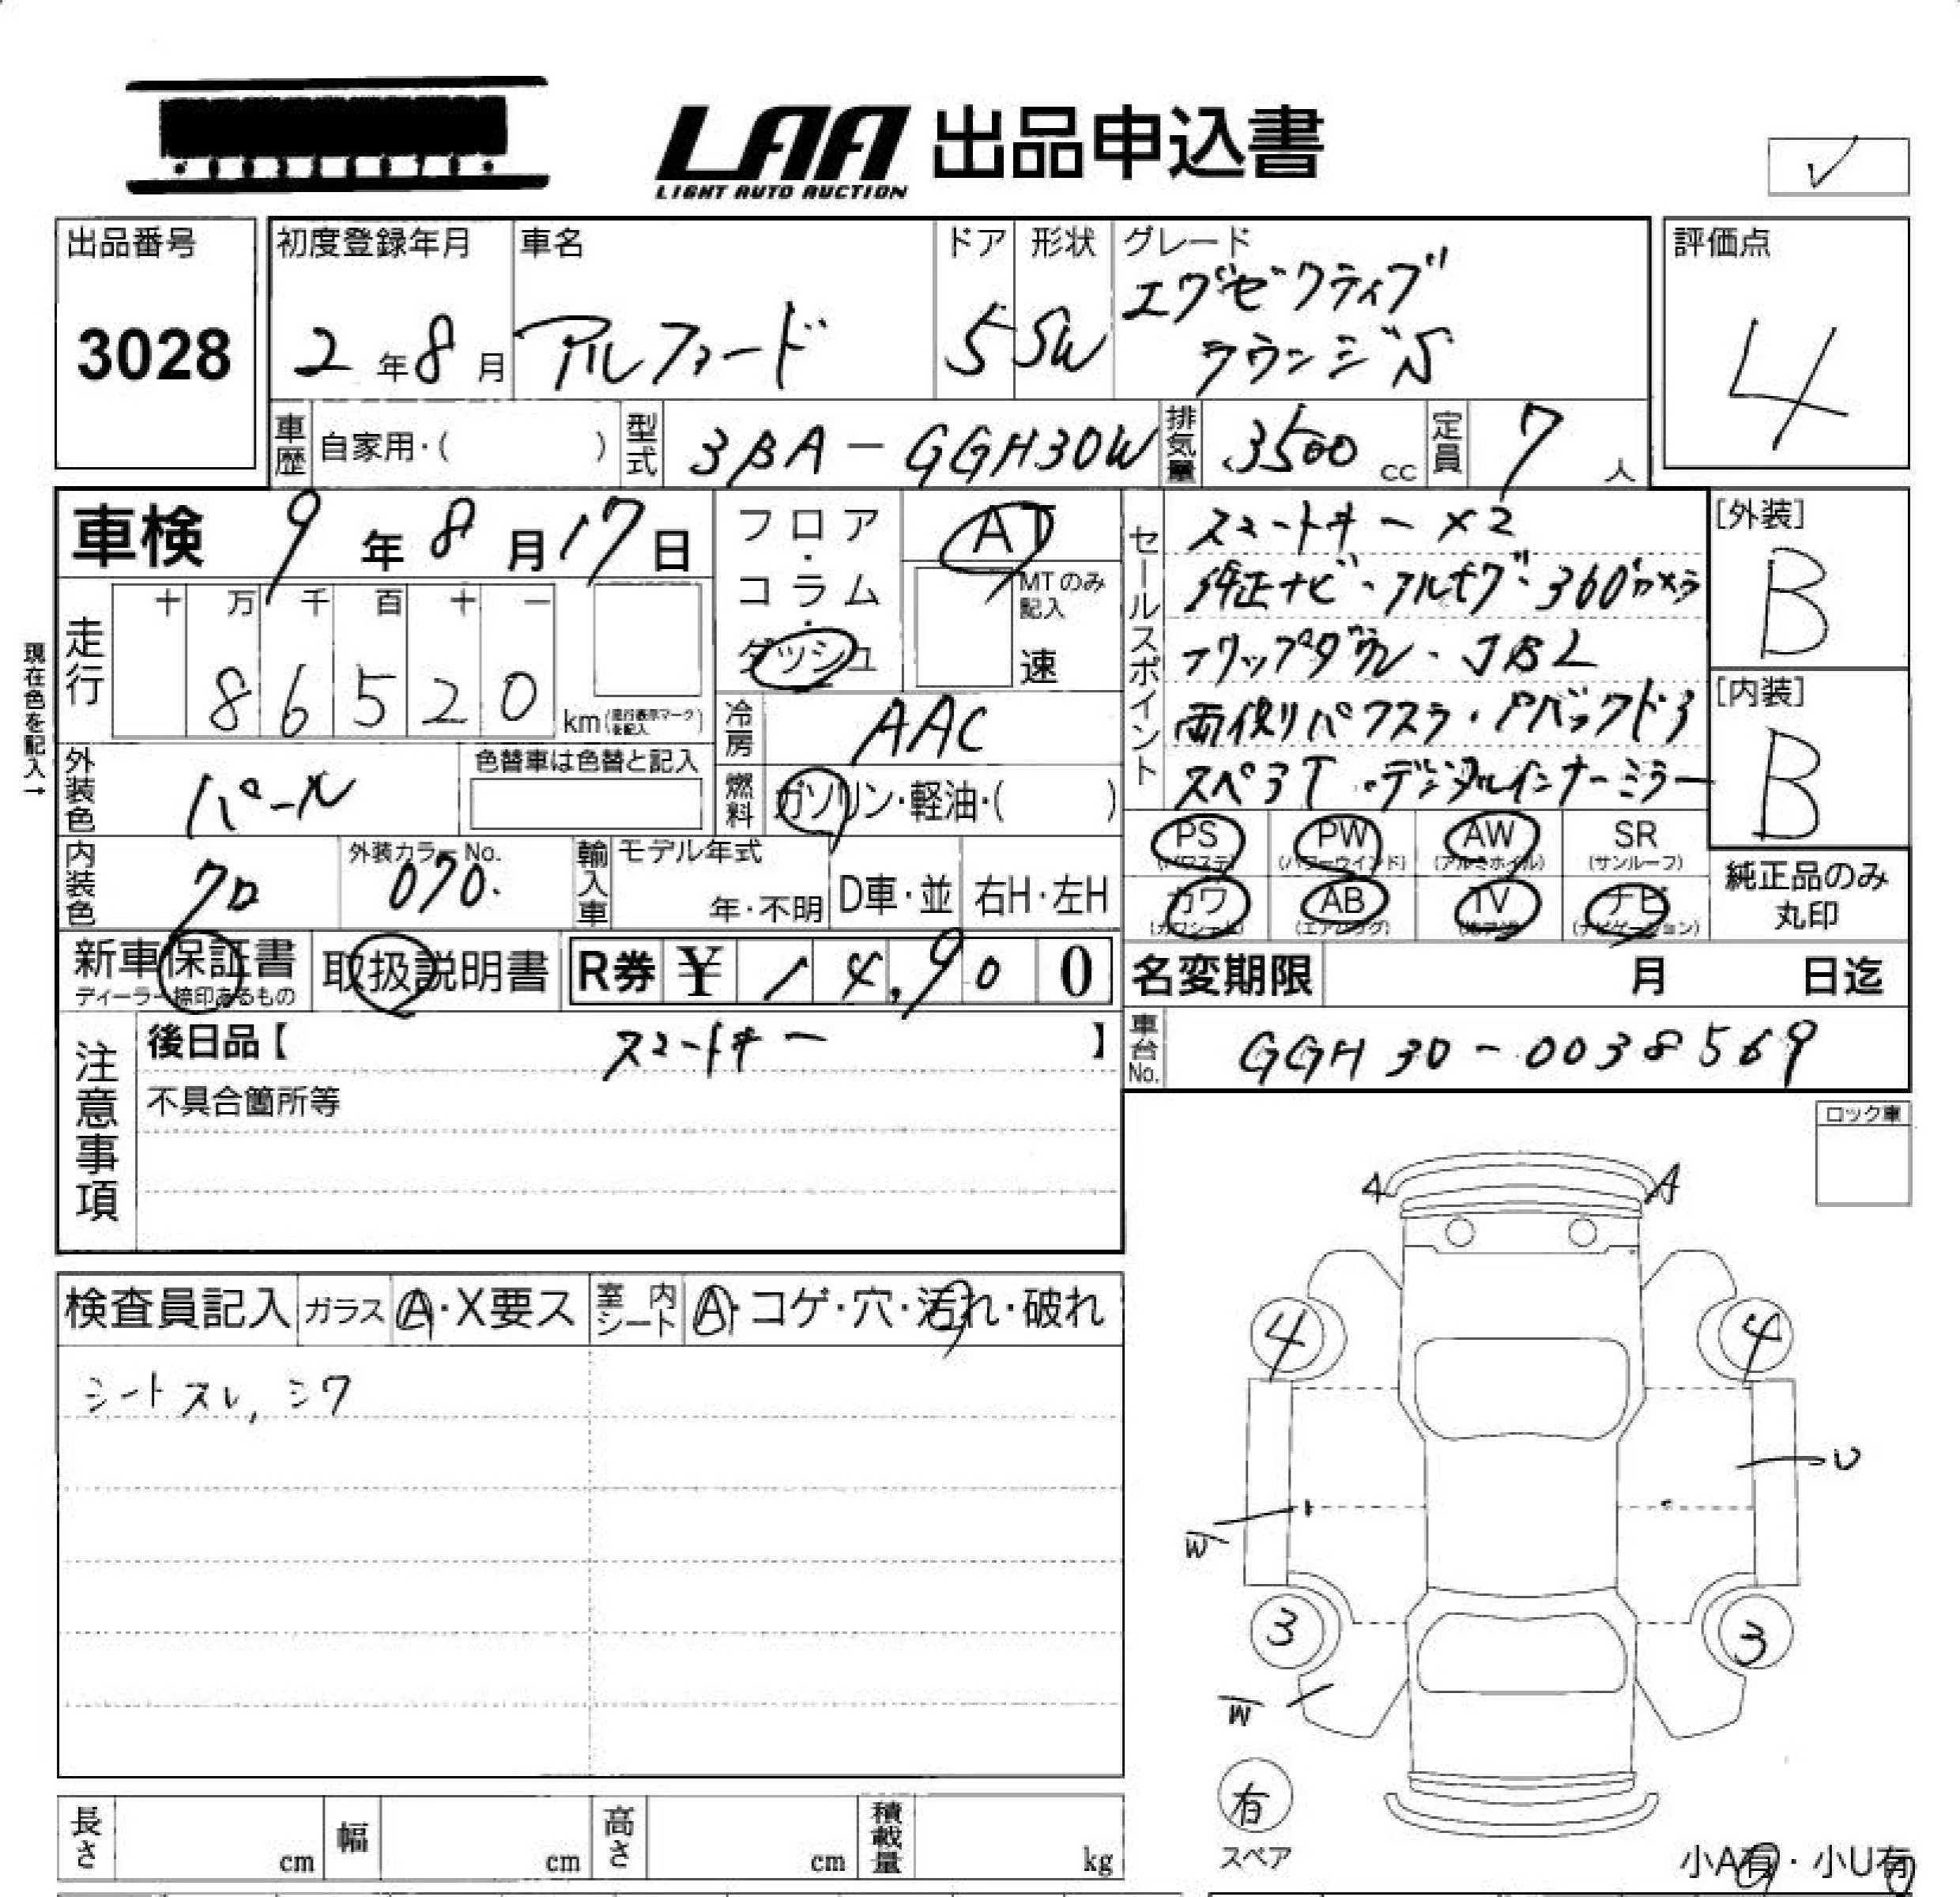 LAA 出品申込書
LIGHT AUTO AUCTION
✓
出品番号
3028
初度登録年月
2年8月
車名
アルファード
ドア
5
形状
SW
グレード
エグゼクティブ
ラウンジS
評価点
4
車歴 自家用・( )
型式 3BA-GGH30W
排気量 3500 cc
定員 7 人
車検 9年8月17日
現在色を記入→
走行 十万千百十一
86520 km(走行表示マークを記入)
フロア・コラム・ダッシュ
AT
MTのみ記入
速
冷房 AAC
燃料 ガソリン・軽油・( )
外装色 パール
色替車は色替と記入
内装色 クロ
外装カラーNo. 070.
輸入車 モデル年式
年・不明 D車・並 右H・左H
セールスポイント
スマートキー×2
純正ナビ・フルセグ・360°カメラ
フリップダウン・JBL
両側パワスラ・Pバックドア
スペアT・デジタルインナーミラー
[外装]
B
[内装]
B
PS (パワステ) PW (パワーウインド) AW (アルミホイル) SR (サンルーフ)
カワ (カワシート) AB (エアバッグ) TV (地デジ) ナビ (ナビゲーション)
純正品のみ
丸印
新車保証書
ディーラー捺印あるもの
取扱説明書
R券 ¥ 14,900
名変期限 月 日迄
車台No. GGH30-0038569
注意事項
後日品【 スマートキー 】
不具合箇所等
ロック車
検査員記入 ガラス A・X要ス 室内シート A・コゲ・穴・汚れ・破れ
シートスレ, シワ
A A
4 4
U
W
3 3
W
有
スペア
小A有・小U有
長さ cm 幅 cm 高さ cm 積載量 kg